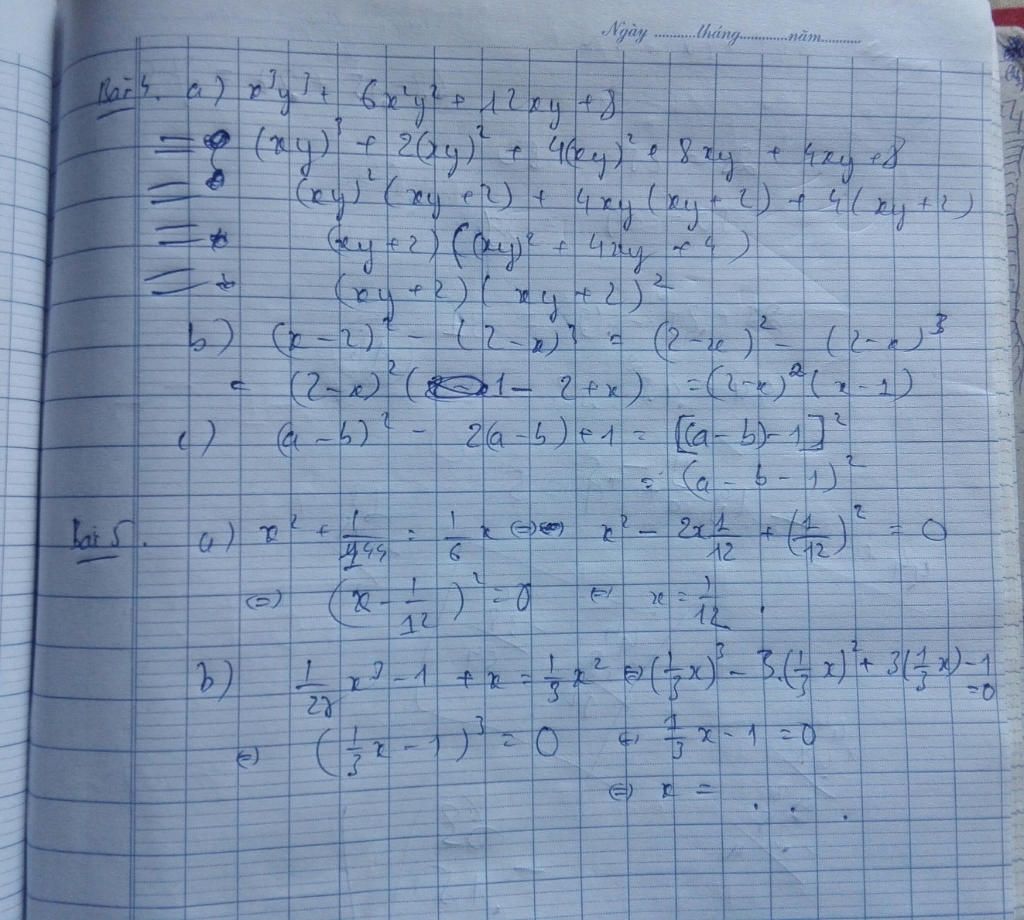 Ngày ..........tháng..........năm..........
Bài 4. a) x³y³ + 6x²y² + 12xy + 8
= (xy)³ + 2(xy)² + 4(xy)² + 8xy + 4xy + 8
= (xy)² (xy + 2) + 4xy (xy + 2) + 4 (xy + 2)
= (xy + 2) ((xy)² + 4xy + 4)
= (xy + 2) (xy + 2)²
b) (x - 2)² - (2 - x)³ = (2 - x)² - (2 - x)³
= (2 - x)² (1 - 2 + x) = (2 - x)² (x - 1)
c) (a - b)² - 2(a - b) + 1 = [(a - b) - 1]²
= (a - b - 1)²
Bài 5. a) x² + 1/144 = 1/6 x ⇔ x² - 2x 1/12 + (1/12)² = 0
⇔ (x - 1/12)² = 0 ⇔ x = 1/12.
b) 1/27 x³ - 1 + x = 1/3 x² ⇔ (1/3 x)³ - 3.(1/3 x)² + 3(1/3 x) - 1 = 0
⇔ (1/3 x - 1)³ = 0 ⇔ 1/3 x - 1 = 0
⇔ x = . . .